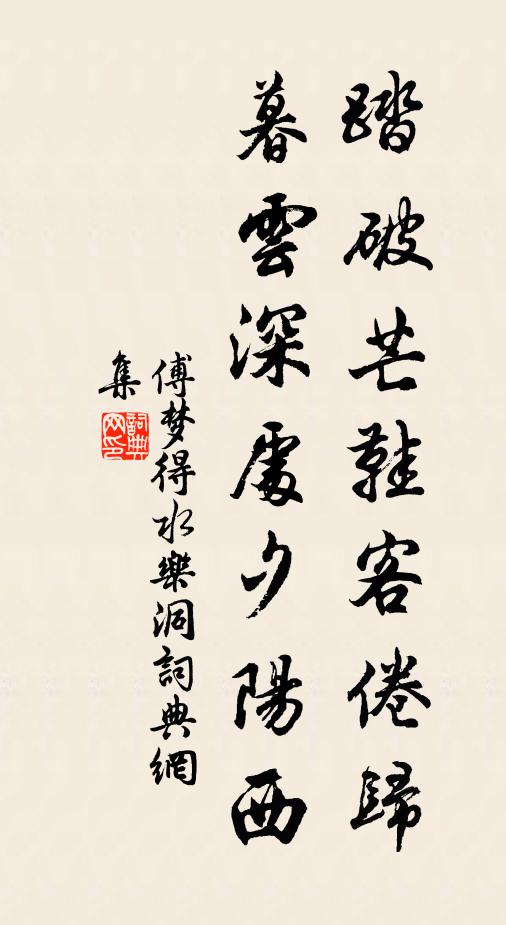 踏破芒鞋客倦歸
暮雲深處夕陽西
傅梦得水樂洞詞典網
集
詞典
网印